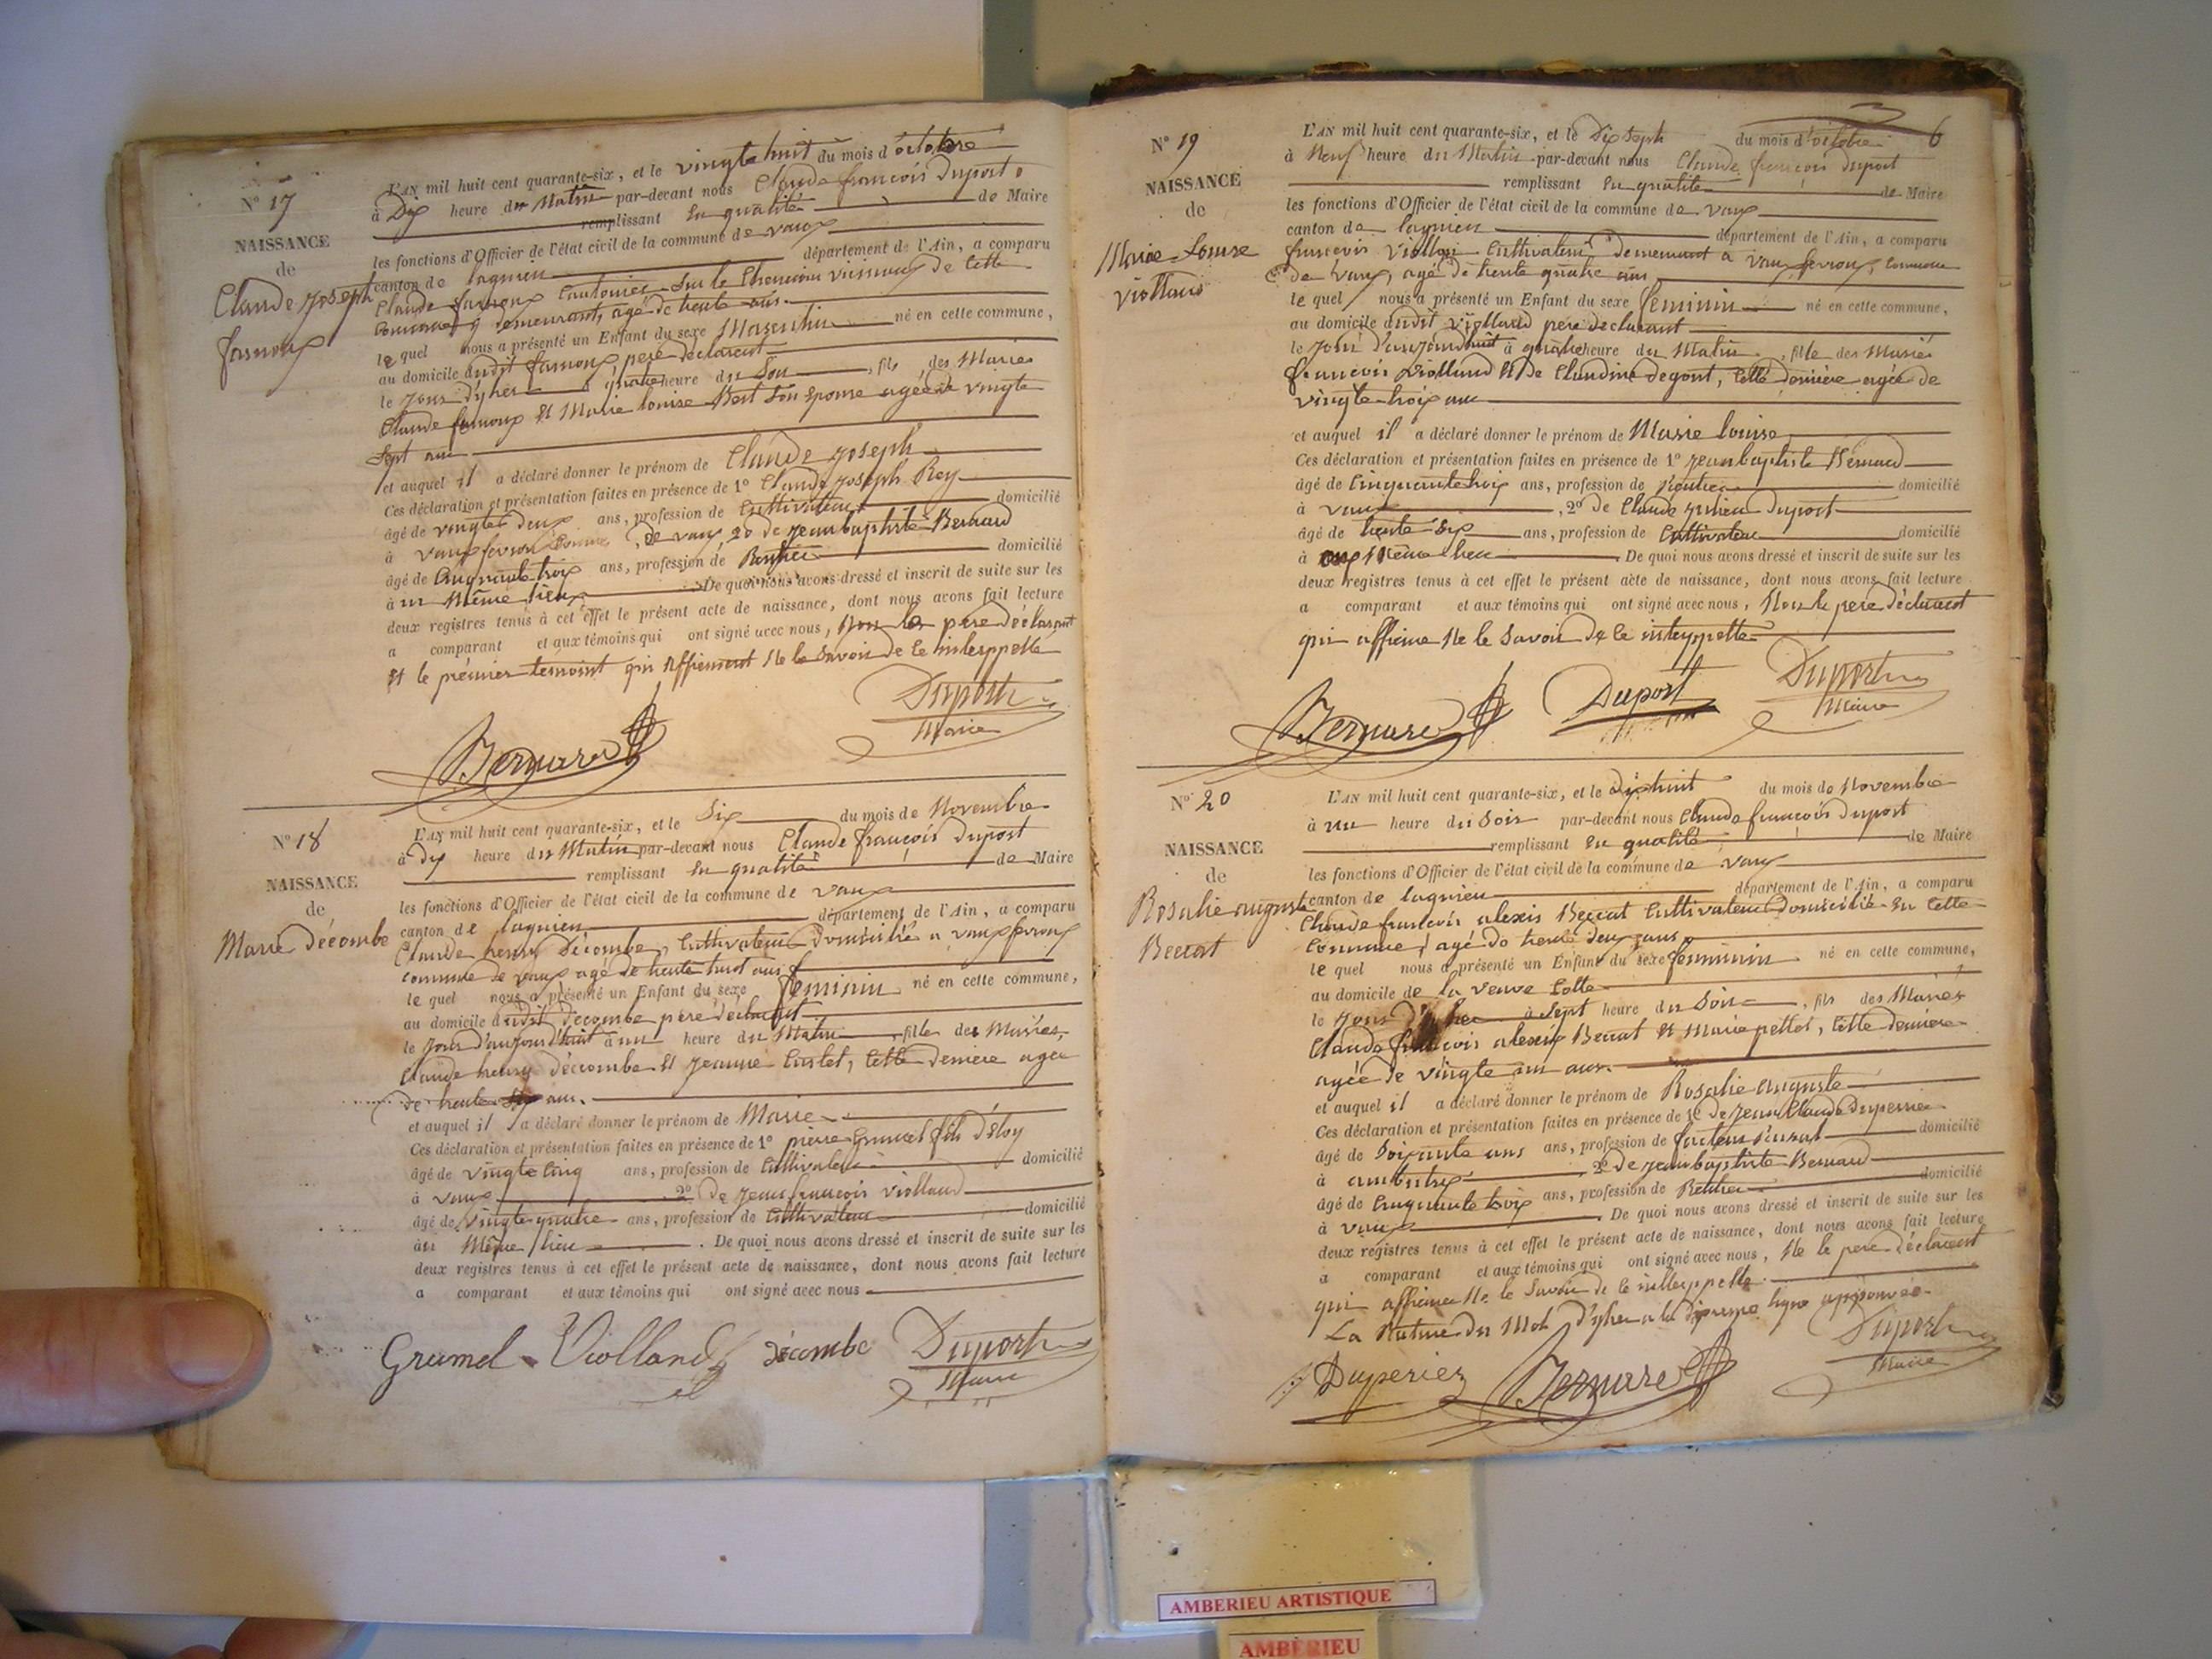 N° 17
NAISSANCE
de
Claude Joseph
famoux
L'AN mil huit cent quarante-six, et le vingte huit du mois d'octobre
à Dix heure du Matin par-devant nous Claude françois Duport
remplissant en qualité de Maire
les fonctions d'Officier de l'état civil de la commune de vaux
canton de lagnieu département de l'Ain, a comparu
Claude famoux Cantonier sur le Chemain de Cette
Commune y demeurant, agé de trente ans
le quel nous a présenté un Enfant du sexe Masculin né en cette commune,
au domicile dudit famoux pere déclarant
le jour d'yher à quatre heure du Soir, fils des Mariés
Claude famoux et Marie louise Bert son epouse agée de vingte
sept ans
et auquel il a déclaré donner le prénom de Claude joseph
Ces déclaration et présentation faites en présence de 1° Claude joseph Rey
âgé de vingte deux ans, profession de Cultivateur domicilié
à vaux fevroux, de vaux, 2° de jean baptiste Bernard
âgé de Cinquante troix ans, profession de Rentier domicilié
à un Même lieu De quoi nous avons dressé et inscrit de suite sur les
deux registres tenus à cet effet le présent acte de naissance, dont nous avons fait lecture
a comparant et aux témoins qui ont signé avec nous, Non le père déclarant
et le prémier temoint qui affirment Ne le Savoir de ce interppellé
Bernard
Duport
Maire
N° 18
NAISSANCE
de
Marie Décombe
L'AN mil huit cent quarante-six, et le Six du mois de Novembre
à Dix heure du Matin par-devant nous Claude françois Duport
remplissant en qualité de Maire
les fonctions d'Officier de l'état civil de la commune de vaux
canton de lagnieu département de l'Ain, a comparu
Claude henry Décombe, Cultivateur domicilié a vaux fevroux
commune de vaux agé de trente huit ans
le quel nous a présenté un Enfant du sexe feminin né en cette commune,
au domicile dudit décombe père déclarant
le jour d'aujourd'huit à un heure du Matin, fille des Mariés
Claude henry décombe et jeanne Curtet, Cette derniere agée
de trente six ans.
et auquel il a déclaré donner le prénom de Marie
Ces déclaration et présentation faites en présence de 1° pierre Grumel fils d'éloy
âgé de vingte cinq ans, profession de Cultivateur domicilié
à vaux 2° de jean francois viollaud
âgé de vingte quatre ans, profession de Cultivateur domicilié
à un Même lieu. De quoi nous avons dressé et inscrit de suite sur les
deux registres tenus à cet effet le présent acte de naissance, dont nous avons fait lecture
a comparant et aux témoins qui ont signé avec nous
Grumel Viollaud décombe Duport
Maire
6
N° 19
NAISSANCE
de
Marie Louise
viollaud
L'AN mil huit cent quarante-six, et le Dix Seph du mois d'octobre
à Neuf heure du Matin par-devant nous Claude françois Duport
remplissant en qualité de Maire
les fonctions d'Officier de l'état civil de la commune de vaux
canton de lagnieu département de l'Ain, a comparu
francois viollaud Cultivateur demeurant a vaux fevroux, Commune
de vaux, agé de trente quatre ans
le quel nous a présenté un Enfant du sexe feminin né en cette commune,
au domicile dudit viollaud père déclarant
le jour d'aujourd'huit à quatre heure du Matin, fille des Mariés
francois viollaud et de Claudine degout, Cette dernière agée de
vingte troix ans
et auquel il a déclaré donner le prénom de Marie louise
Ces déclaration et présentation faites en présence de 1° jean baptiste Bernard
âgé de Cinquante troix ans, profession de rentier domicilié
à vaux, 2° de Claude julien duport
âgé de trente six ans, profession de Cultivateur domicilié
à Même lieu. De quoi nous avons dressé et inscrit de suite sur les
deux registres tenus à cet effet le présent acte de naissance, dont nous avons fait lecture
a comparant et aux témoins qui ont signé avec nous, Non le pere déclarant
qui affirme Ne le Savoir de ce interppellé
Bernard Duport Duport
Maire
N° 20
NAISSANCE
de
Rosalie auguste
Beccat
L'AN mil huit cent quarante-six, et le dix huit du mois de Novembre
à un heure du Soir par-devant nous Claude françois Duport
remplissant en qualité de Maire
les fonctions d'Officier de l'état civil de la commune de vaux
canton de lagnieu département de l'Ain, a comparu
Claude francois alexis Beccat Cultivateur domicilié en Cette
Commune, agé de trente deux ans
le quel nous a présenté un Enfant du sexe femminin né en cette commune,
au domicile de la veuve Cotte
le jour d'yher à sept heure du Soir, fils des Mariés
Claude francois alexis Beccat et Marie pettet, Cette derniere
agée de vingte un ans.
et auquel il a déclaré donner le prénom de Rosalie auguste
Ces déclaration et présentation faites en présence de 1° de jean Claude duperier
âgé de Soixante ans ans, profession de facteur rural domicilié
à ambutrix 2° de jean baptiste Bernard
âgé de Cinquante troix ans, profession de Rentier domicilié
à vaux. De quoi nous avons dressé et inscrit de suite sur les
deux registres tenus à cet effet le présent acte de naissance, dont nous avons fait lecture
a comparant et aux témoins qui ont signé avec nous, Ne le pere déclarant
qui affirme Ne le Savoir de ce interppellé.
La Rature du Mot d'yher a la ligne approuvée
Duperier Bernard Duport
Maire
AMBERIEU ARTISTIQUE
AMBÉRIEU